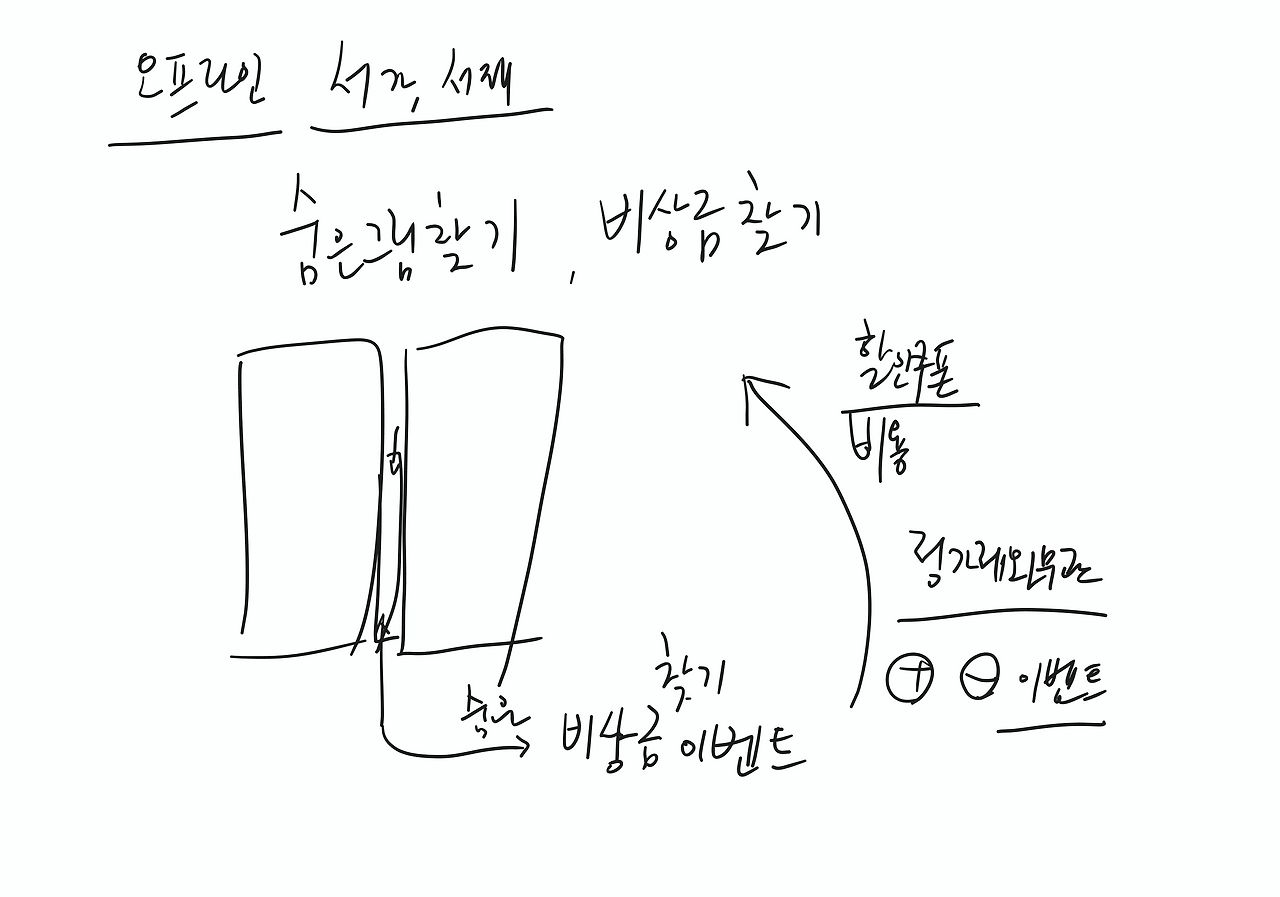 오프라인 서가, 서재
숨은그림찾기, 비상금찾기
할인쿠폰
비용
⊕ ⊖ 이벤트
찾기
숨은
비상금 이벤트